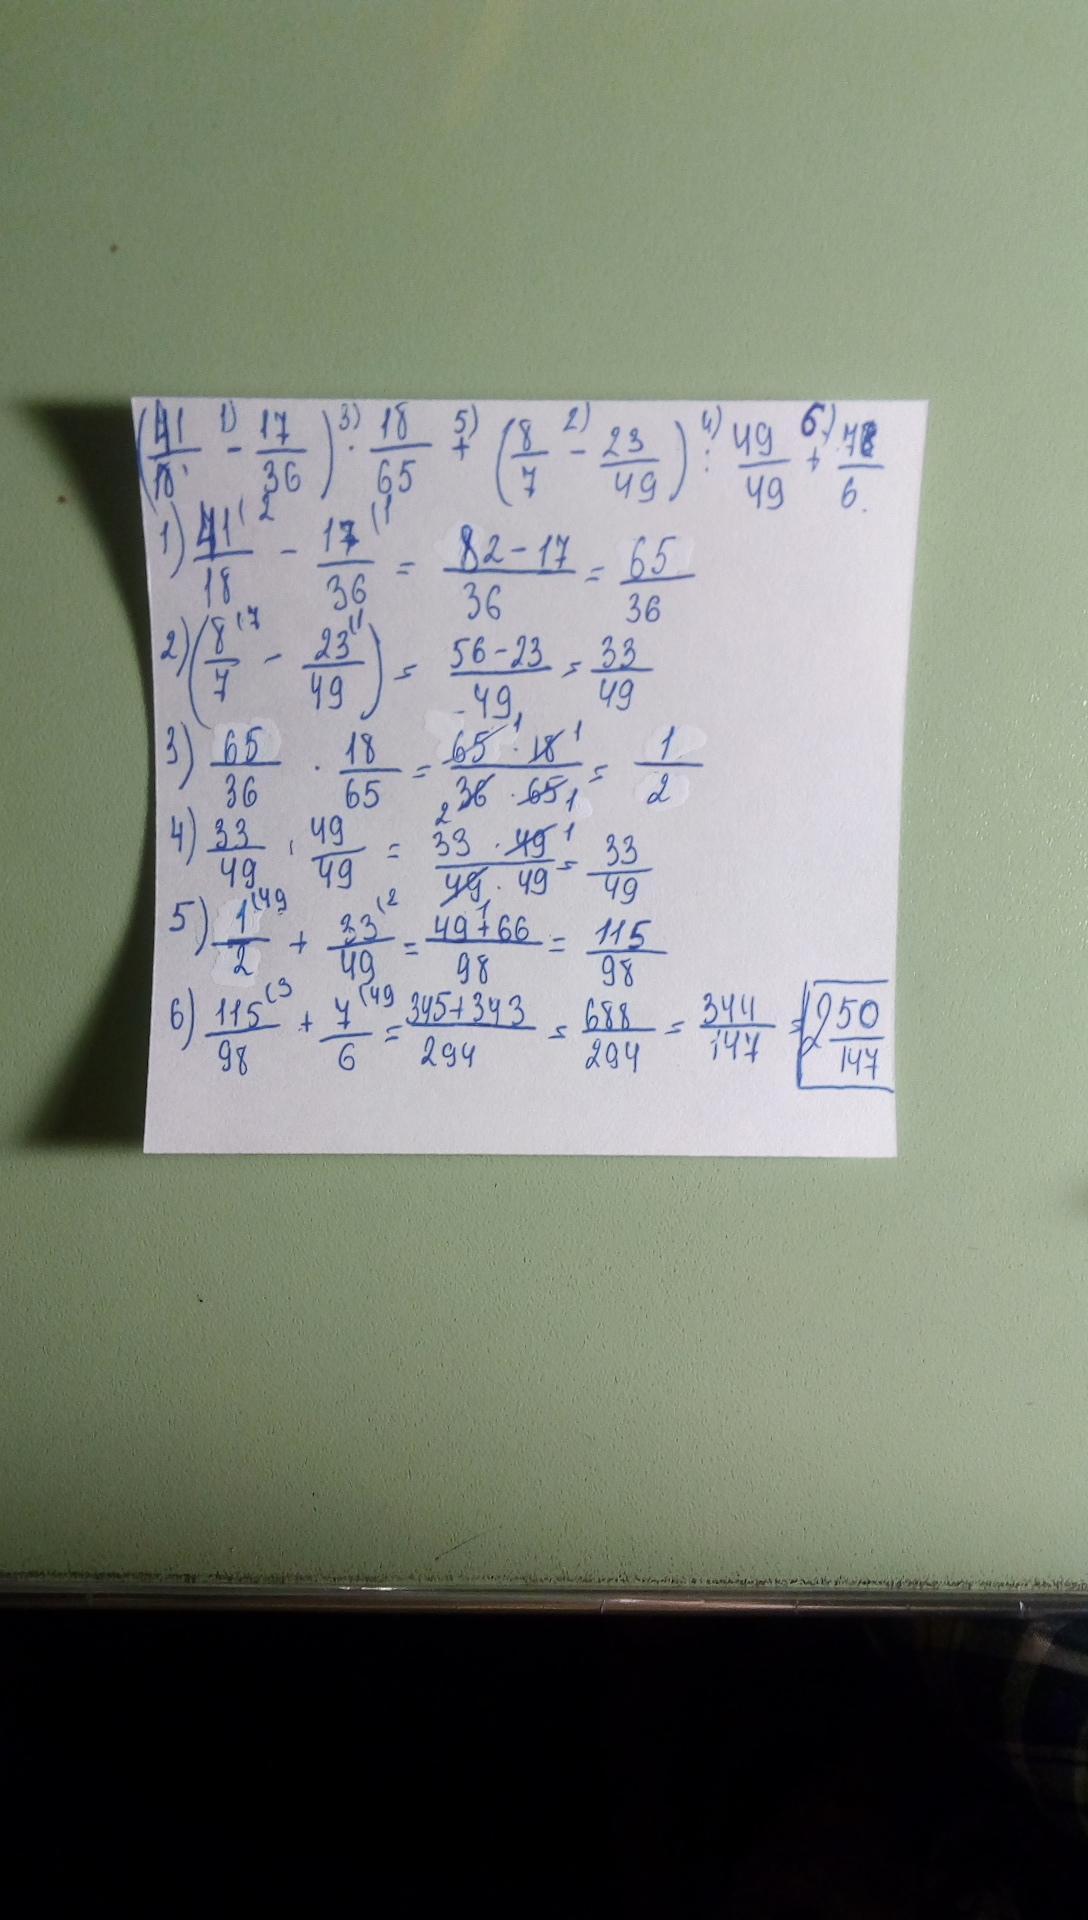 (41/18 1) - 17/36) 3) · 18/65 5) + (8/7 2) - 23/49) 4) : 49/49 6) + 7/6.
1) 41(2/18 - 17(1/36 = 82-17/36 = 65/36
2) (8(7/7 - 23(1/49) = 56-23/49 = 33/49
3) 65/36 · 18/65 = 65 1 · 18 1/2 36 · 65 1 = 1/2
4) 33/49 · 49/49 = 33 · 49 1/49 · 49 = 33/49
5) 1(49/2 + 33(2/49 = 49+66/98 = 115/98
6) 115(3/98 + 7(49/6 = 345+343/294 = 688/294 = 344/147 = 2 50/147